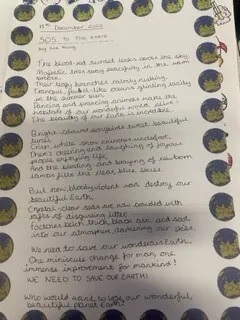 15th December 2022
SOS to the Earth
The blood-red sunset looks across the sky,
Majestic trees sway peacefully in the warm
breeze,
Their leafy branches calmly rustling.
Tranquil, like oceans glinting
in the summer sun.
Dancing and prancing animals make the
habitats of our wonderful world alive -
The beauty of our Earth is incredible!
Bright-coloured songbirds tweet beautiful
tunes,
Crisp, white snow crunches underfoot,
There's cheering and laughing of joyous
people enjoying life,
And the bleating and braying of newborn
lambs fills the clear, blue skies.
But now, bloody violent war destroy our
beautiful Earth.
Crystal-clear seas are now crowded with
rafts of disgusting litter,
Factories belch thick, black ash and soot
into our atmosphere, darkening our skies.
We need to save our wonderous Earth.
One miniscule change for man, one
immense improvement for mankind!
WE NEED TO SAVE OUR EARTH!
Who would want to lose our wonderful,
beautiful planet Earth?